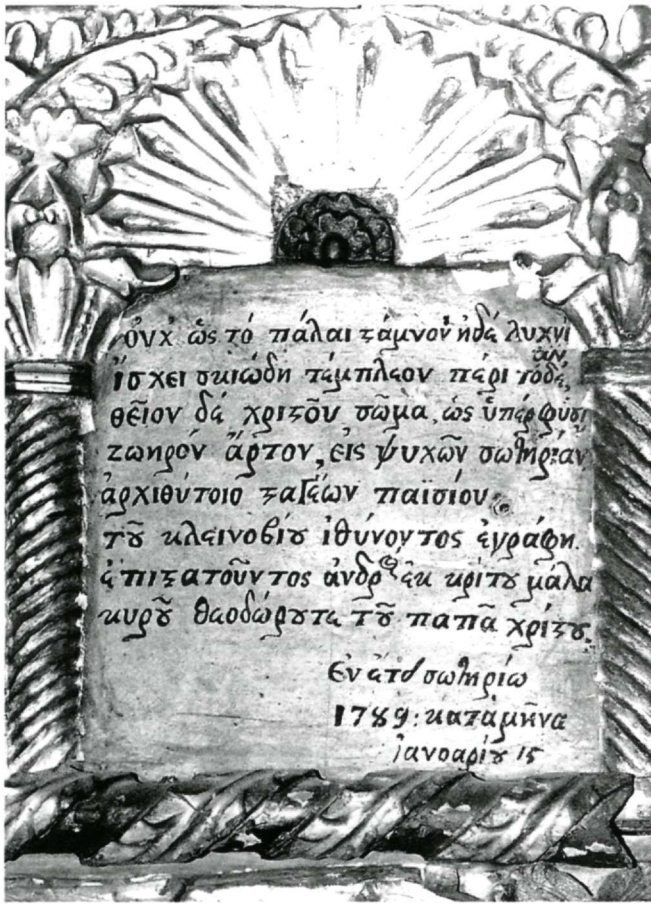 οὐχ ὡς τό πάλαι στάμνον ἠδέ λυχνί
αν,
ἴσχει σκιώδη τέμπλεον πέρι τόδε,
θεῖον δέ χριστοῦ σῶμα, ὡς ὑπέρφυσι
ζωηρόν ἄρτον, εἰς ψυχῶν σωτηρίαν
ἀρχιθύτοιο σταγέων παϊσίου
τοῦ κλεινοβίου ἰθύνοντος ἐγράφη.
ἐπιστατοῦντος ἀνδρὸς ἐκ κρίτου μάλα
κυροῦ θεοδώρου τε τοῦ παπᾶ χρίστου.
Ἐν ἔτει σωτηρίω
1789: κατά μῆνα
ἰανοαρίου 15